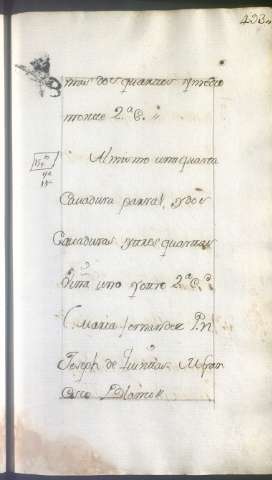 433
mas dos quartos y medio
monte 2ª C.
Al mismo una quarta
Cavadura parral, y dos
Cavaduras y tres quartas
Viña uno y otro 2ª C.
Maria fernandez P.n
Joseph de Quintas
cisco Blanco